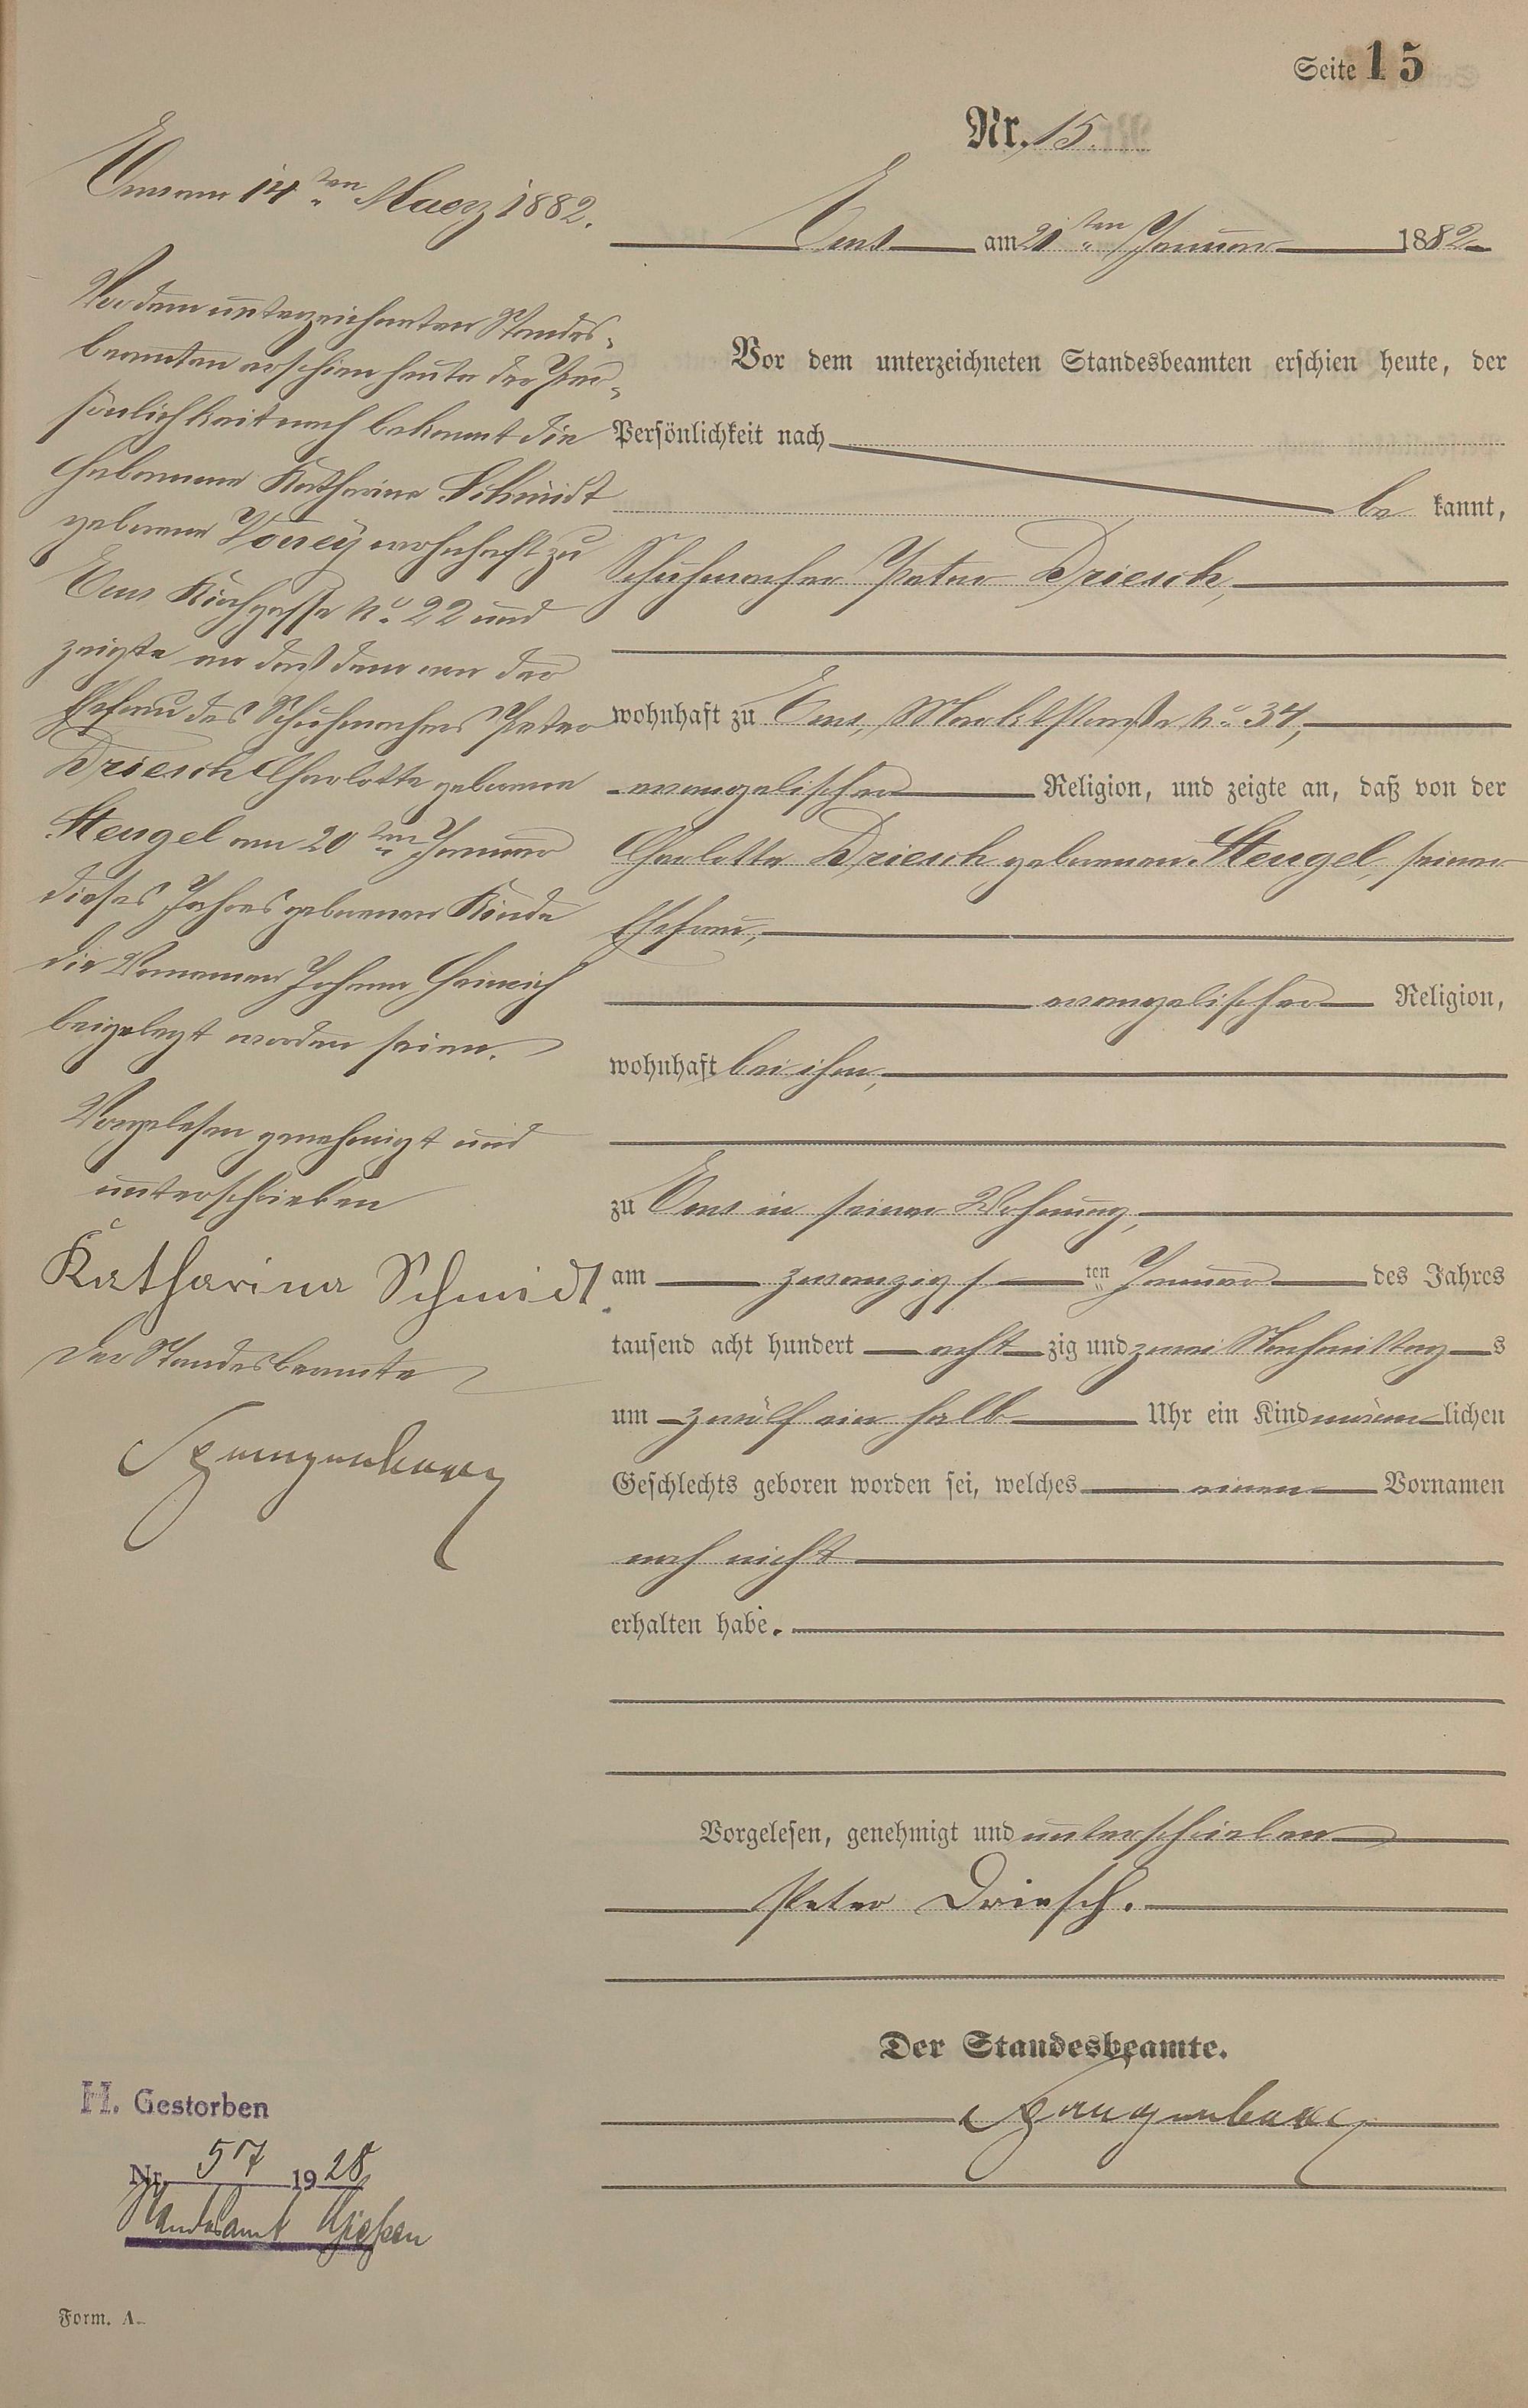 Seite 15
Nr. 15.
Ems am 21ten Januar 1882
Vor dem unterzeichneten Standesbeamten erschien heute, der
Persönlichkeit nach
be kannt,
Schuhmacher Peter Driesch,
wohnhaft zu Ems, Marktstraße No 34,
evangelischer Religion, und zeigte an, daß von der
Charlotte Driesch geborenen Stengel, seiner
Ehefrau,
evangelischer Religion,
wohnhaft bei ihm,
zu Ems in seiner Wohnung,
am zwanzigsten Januar des Jahres
tausend acht hundert acht zig und zwei Nachmittags
um zwölf ein halb Uhr ein Kind männlichen
Geschlechts geboren worden sei, welches einen Vornamen
noch nicht
erhalten habe.
Vorgelesen, genehmigt und unterschrieben
Peter Driesch.
Der Standesbeamte.
Spangenberg
Ems am 14ten Maerz 1882.
Vor dem unterzeichneten Standes-
beamten erschien heute der Per-
sönlichkeit nach bekannt die
Hebamme Katharina Schmidt
geborene wohnhaft zu
Ems Kirchgasse No. 22 und
zeigte an daß dem von der
Ehefrau des Schuhmachers Peter
Driesch Charlotte geborene
Stengel am 20ten Januar
dieses Jahres geborenen Kinde
die Vornamen Johann Heinrich
beigelegt worden seien.
Vorgelesen genehmigt und
unterschrieben
Katharina Schmidt.
Der Standesbeamte
Spangenberg
H. Gestorben
Nr. 57 1928
Standesamt Gießen
Form. A.